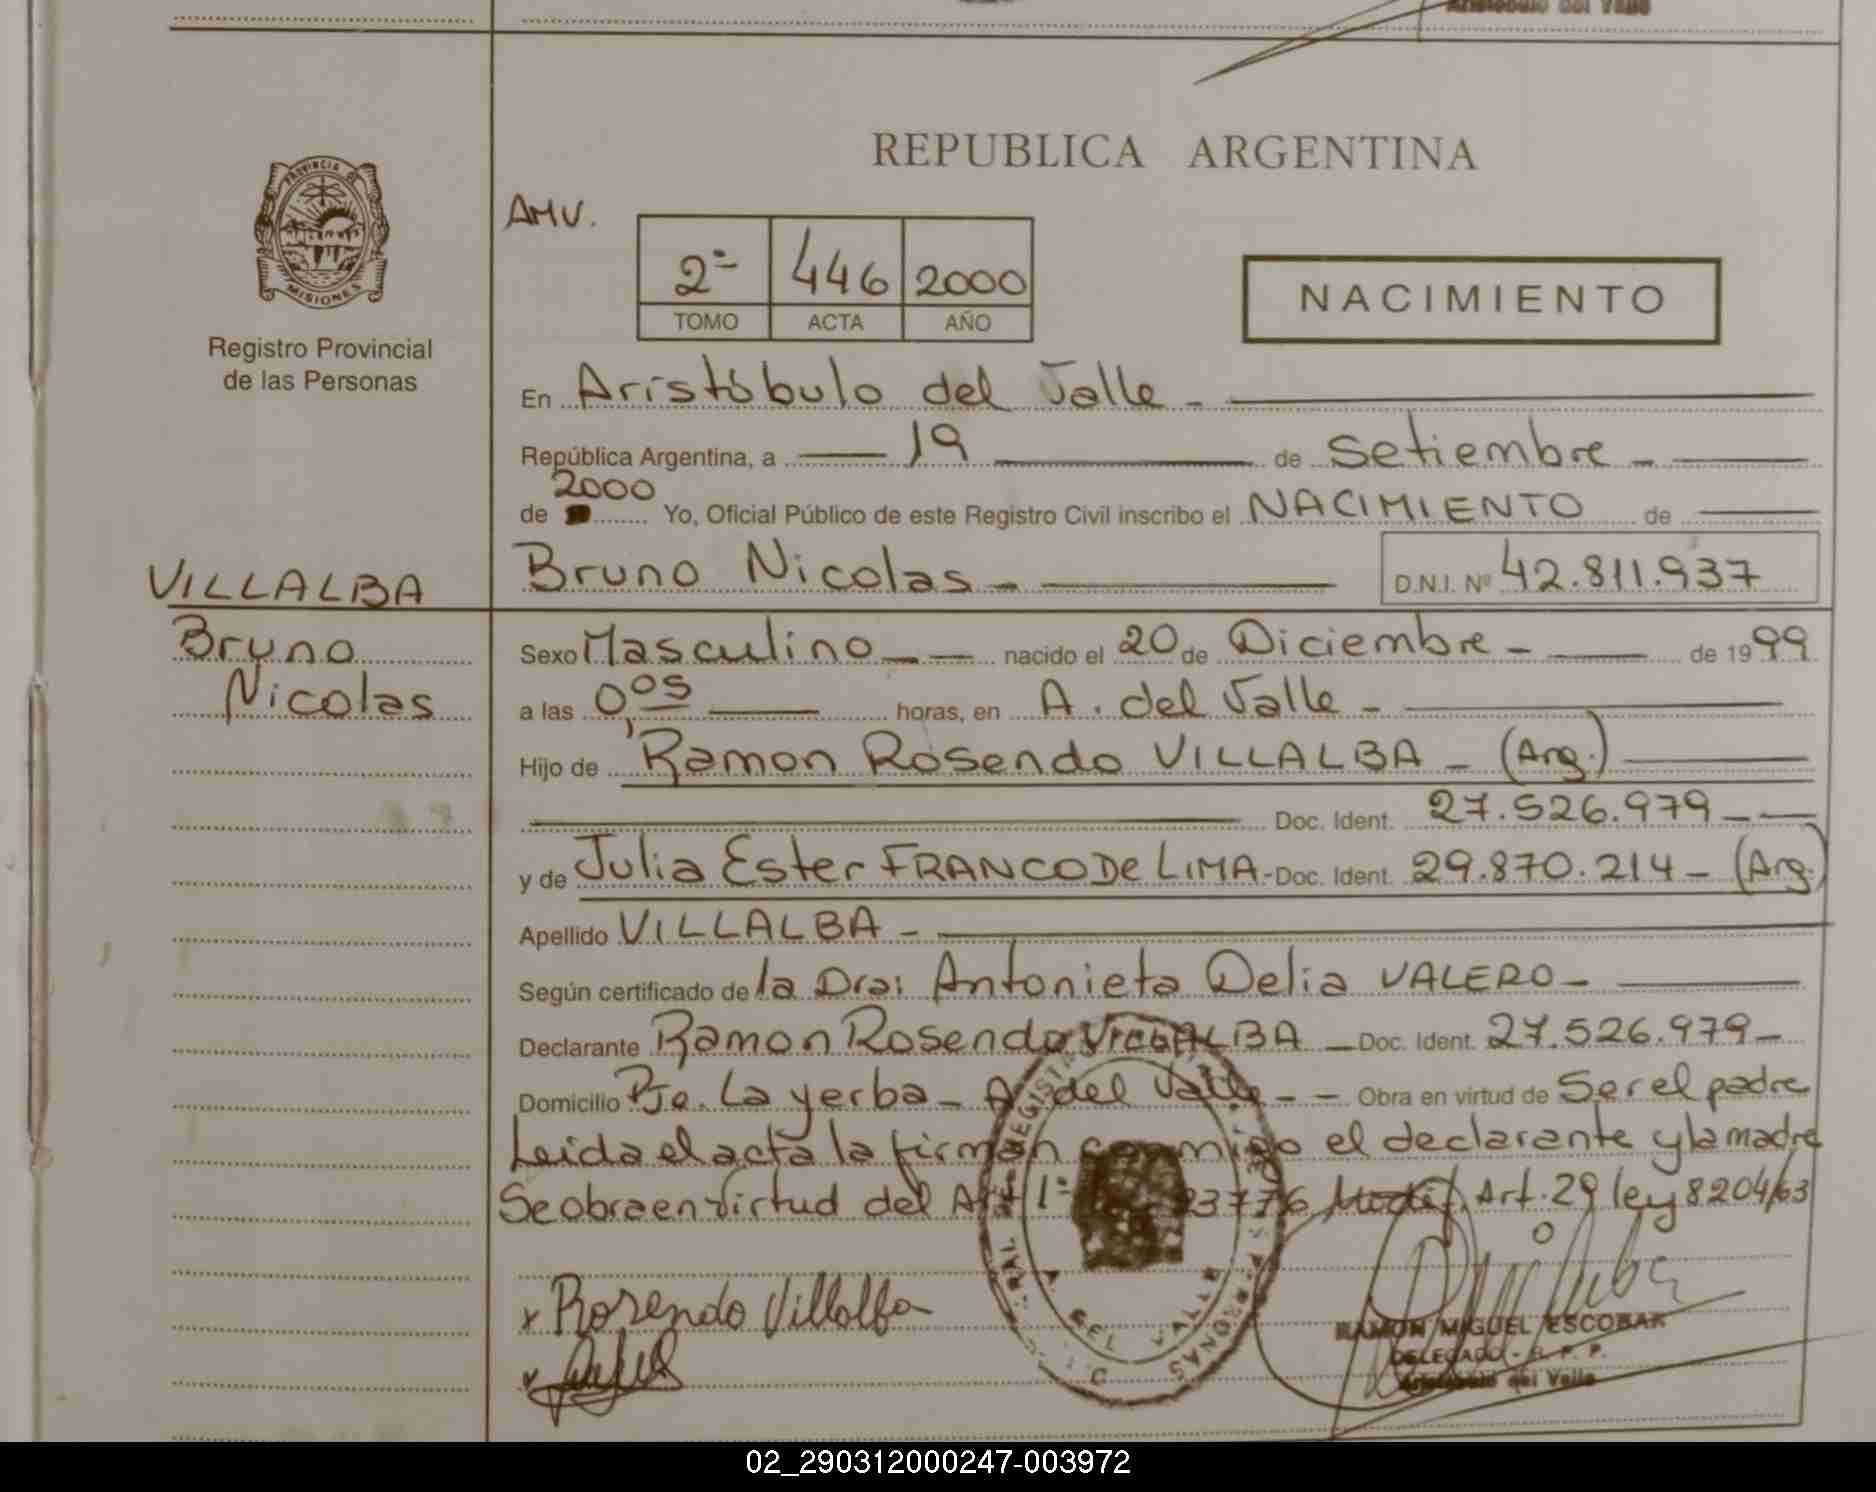 Aristóbulo del Valle
REPUBLICA ARGENTINA
PROVINCIA DE
MISIONES
Registro Provincial
de las Personas
AMV.
2º 446 2000
TOMO ACTA AÑO
NACIMIENTO
En Aristóbulo del Valle -
República Argentina, a 19 de Setiembre -
2000
de Yo, Oficial Público de este Registro Civil inscribo el NACIMIENTO de
VILLALBA
Bruno
Nicolas
Bruno Nicolas - D.N.I. Nº 42.811.937
Sexo Masculino - nacido el 20 de Diciembre - de 1999
a las 0,05 horas, en A. del Valle -
Hijo de Ramon Rosendo VILLALBA - (Arg.)
Doc. Ident. 27.526.979 -
y de Julia Ester FRANCO DE LIMA - Doc. Ident. 29.870.214 - (Arg.)
Apellido VILLALBA -
Según certificado de la Dra: Antonieta Delia VALERO -
Declarante Ramon Rosendo VILLALBA - Doc. Ident. 27.526.979 -
Domicilio Pje. La yerba - A. del Valle - - Obra en virtud de Ser el padre
Leida el acta la firman conmigo el declarante y la madre
Se obra en virtud del Art 1º 23776 Modif. Art. 29 ley 8204/63
x Rosendo Villalba
RAMON MIGUEL ESCOBAR
DELEGADO - R. P. P.
Aristóbulo del Valle
02_290312000247-003972